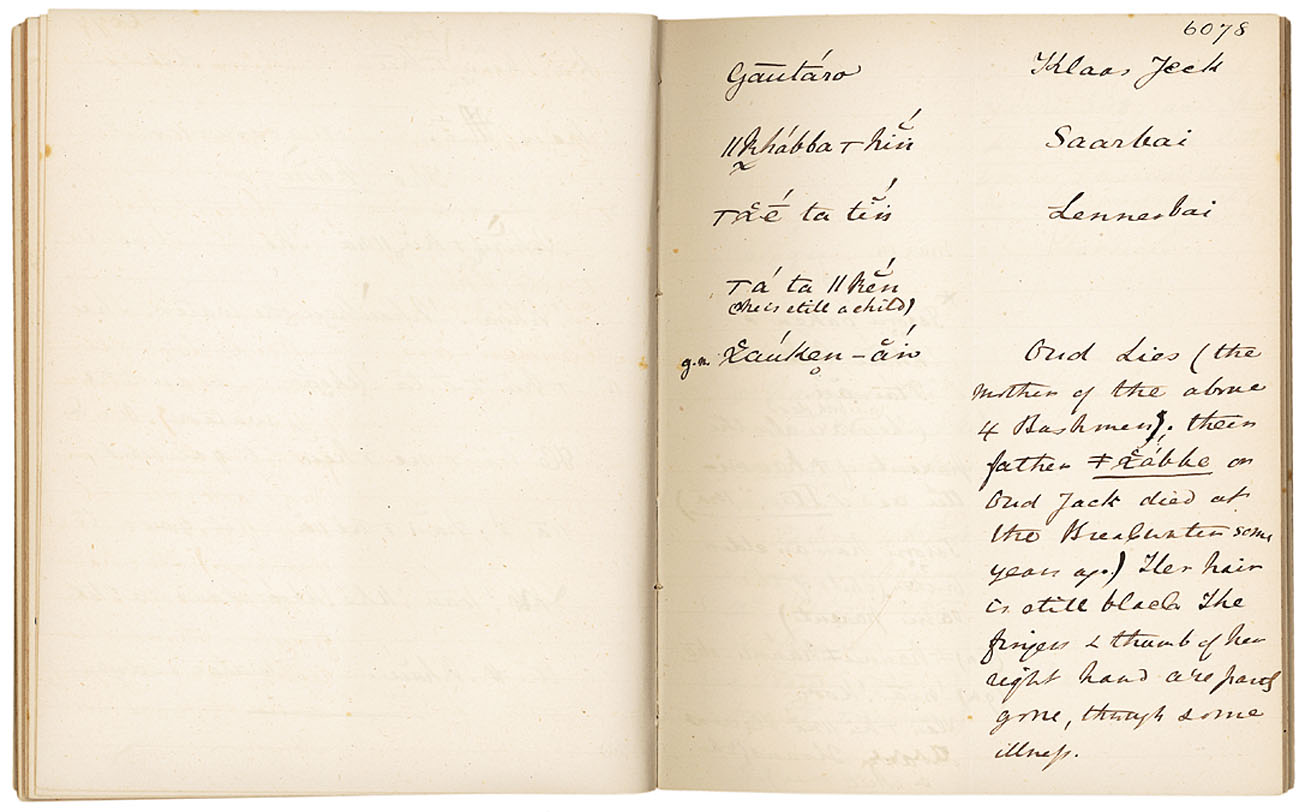 6078
Gautáro Klaas Jeck
ǁkhábba ⊤kĭn Saarbai
⊤χē ta tĕn Lennesbai
⊤á ta ǁkĕn
(he is still a child)
g.n. χaúken-ăn Oud Lies (the
mother of the above
4 Bushmen), their
father ǂχábbe or
Oud Jack died at
the Breakwater some
years ago.) Her hair
is still black The
fingers & thumb of her
right hand are partly
gone, through some
illness.